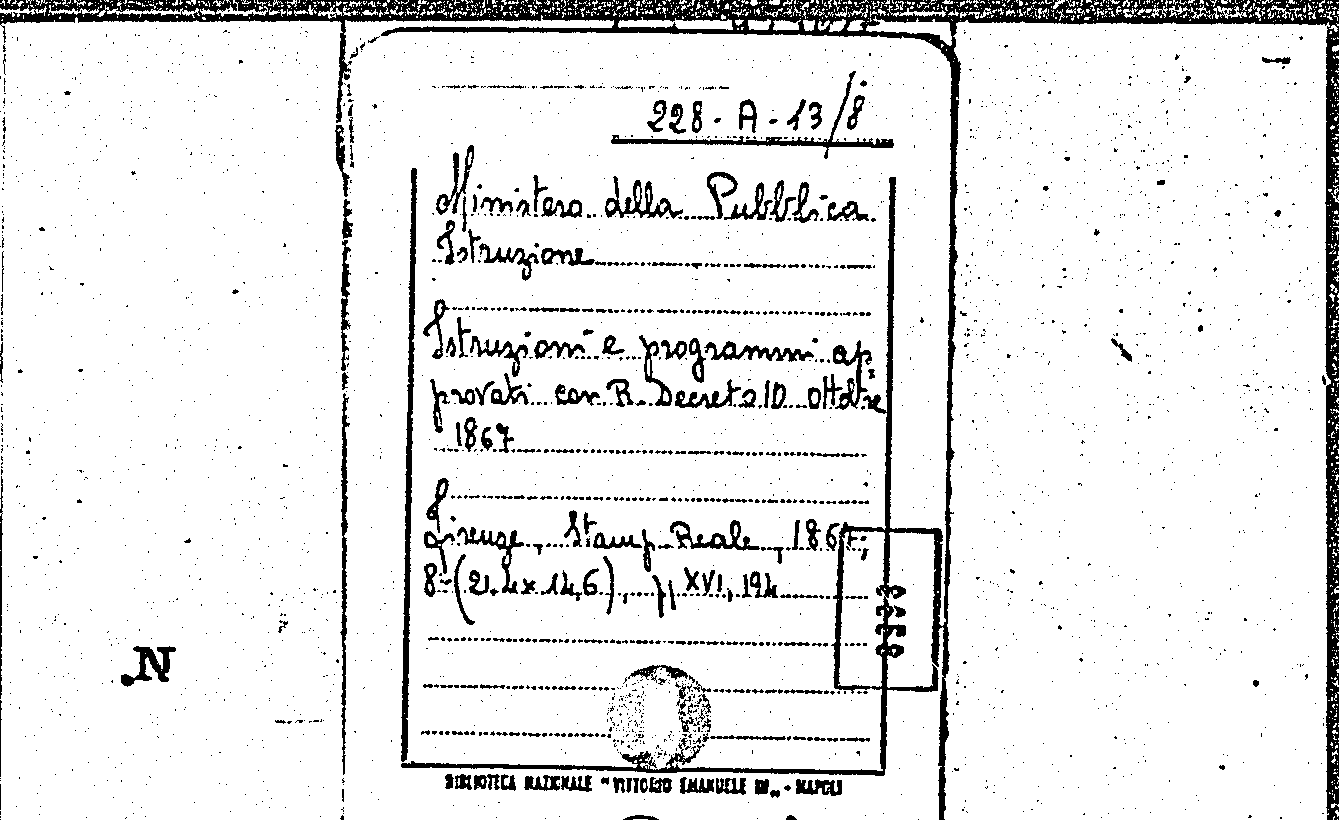 228-A-13/8
Ministero della Pubblica
Istruzione
Istruzioni e programmi ap=
provati con R. Decreto 10 ottobre
1867
Firenze, Stamp. Reale, 1867;
8° (21.4 x 14,6), pp XVI, 194
BIBLIOTECA NAZIONALE "VITTORIO EMANUELE III" - NAPOLI
N.